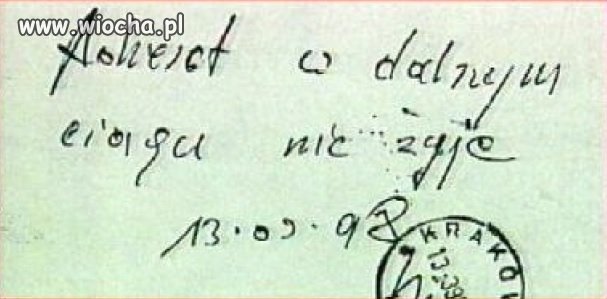 www.wiocha.pl
Adresat w dalszym
ciągu nie żyje
13.09.98
KRAKÓ